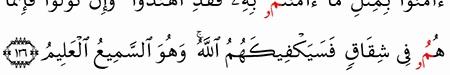 ءَامَنُوا بِمِثْلِ مَا ءَامَنتُمُۥ بِهِۦ فَقَدِ ٱهْتَدَوا وَّإِن تَوَلَّوْا فَإِنَّمَا
هُمُۥ فِى شِقَاقٍ فَسَيَكْفِيكَهُمُ ٱللَّهُۚ وَهُوَ ٱلسَّمِيعُ ٱلْعَلِيمُ ١٣٦